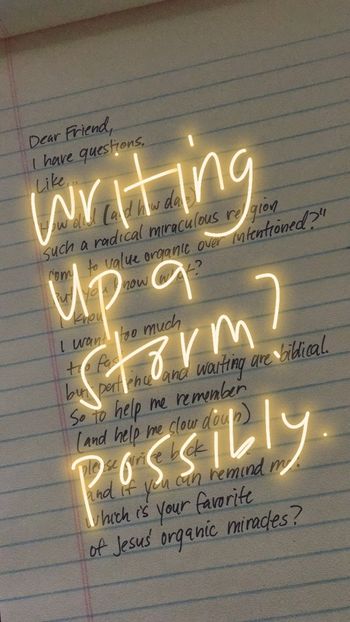 writing
up a
storm?
possibly.
Dear Friend,
I have questions.
Like
"How did (and how dare)
such a radical miraculous religion
come to value organic over intentioned?"
But you know what?
I know
I want too much
too fast
but patience and waiting are biblical.
So to help me remember
(and help me slow down)
please write back
and if you can remind me:
which is your favorite
of Jesus' organic miracles?